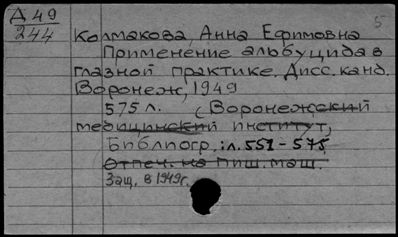 Д 49
244
5
Колмакова, Анна Ефимовна
Применение альбуцида в
глазной практике. Дисс. канд.
Воронеж, 1949
575 л. (Воронежский
медицинский институт,
Библиогр.: л. 551-575
Отпеч. на пиш. маш.
Защ. в 1949г.